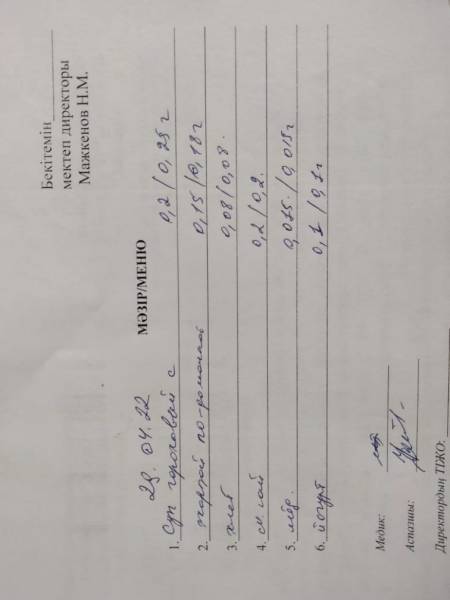 Бекітемін
мектеп директоры
Мажкенов Н.М.
МӘЗІР/МЕНЮ
29. 04.22
1. Суп гороховый с 0,2 / 0,25г
2. по-домашнему 0,15 / 0,18г
3. хлеб 0,08 / 0,08.
4. сл. чай 0,2 / 0,2.
5. мёд. 0,015. / 0,015г
6. йогурт 0,1 / 0,1г
Медик:
Аспазшы:
Директордың ТІЖО: